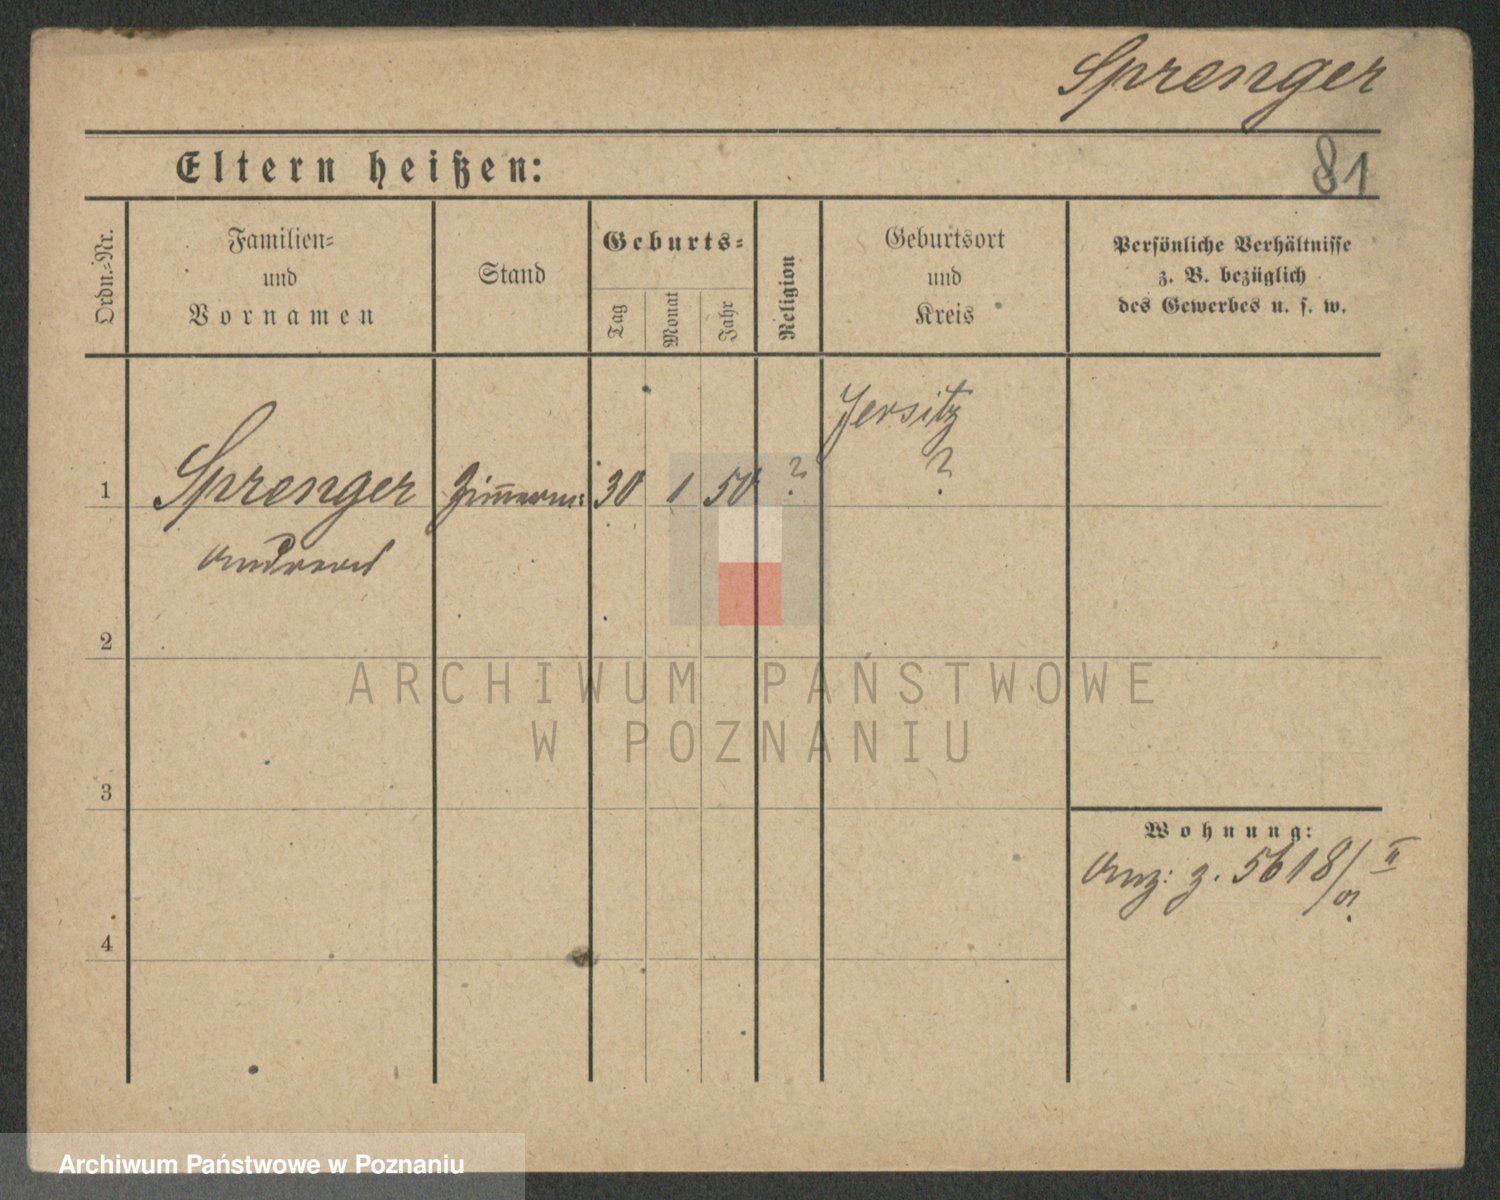 Sprenger
Eltern heißen:
81
Ordn.=Nr.
Familien=
und
Vornamen
Stand
Geburts=
Tag
Monat
Jahr
Religion
Geburtsort
und
Kreis
Persönliche Verhältnisse
z. B. bezüglich
des Gewerbes u. s. w.
1
Sprenger
Andreas
Zim̅erm:
30
1
50
?
Jersitz
?
2
3
4
Wohnung:
Anz: z. 5618/01 II
ARCHIWUM PAŃSTWOWE
W POZNANIU
Archiwum Państwowe w Poznaniu